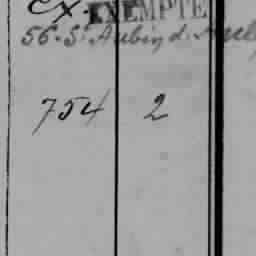 Ex. EXEMPTÉ
56. St Aubin d.
754 2